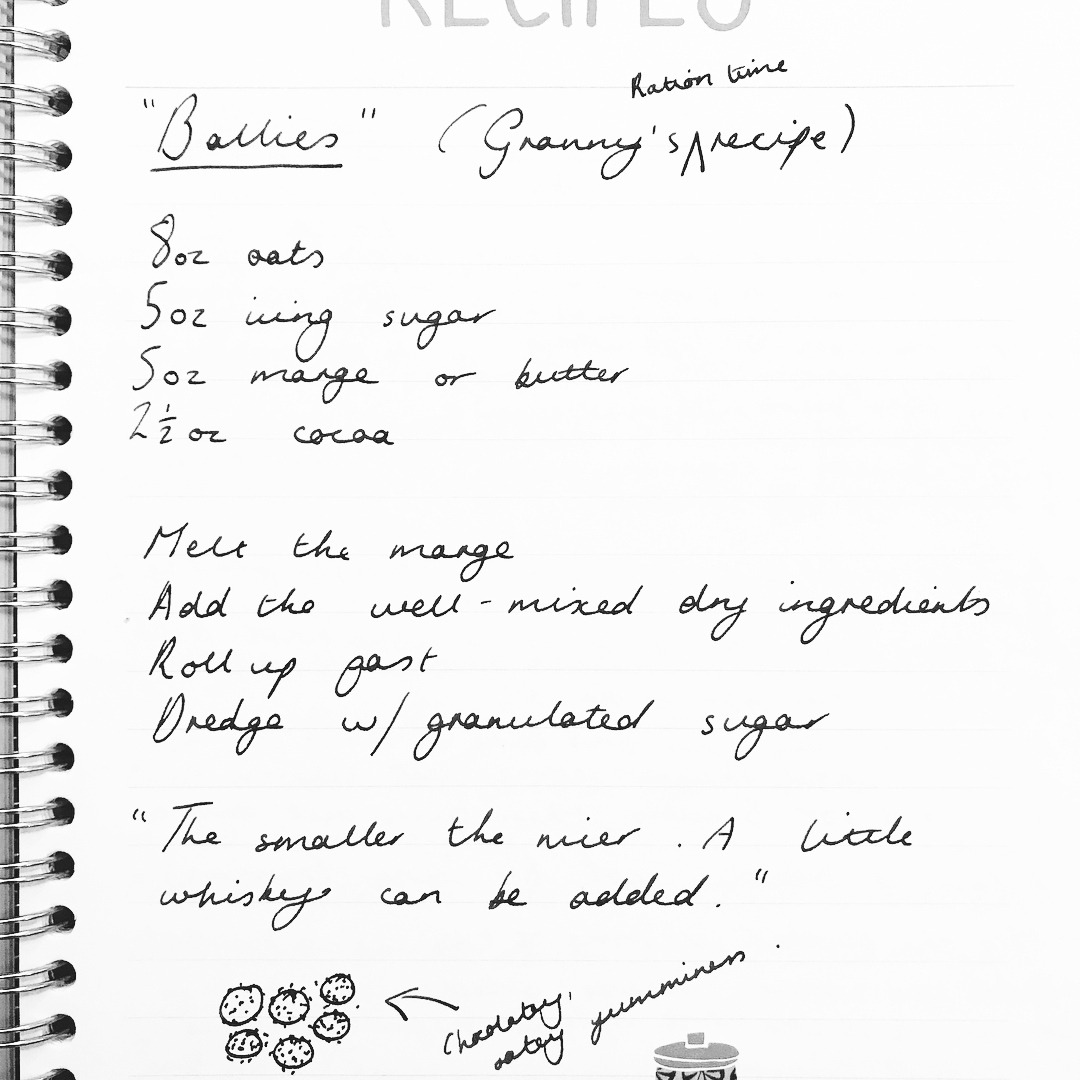 RECIPES
"Ballies" (Granny's Ration time recipe)
8oz oats
5oz icing sugar
5oz marge or butter
2½oz cocoa
Melt the marge
Add the well-mixed dry ingredients
Roll up fast
Dredge w/ granulated sugar
"The smaller the nicer. A little
whiskey can be added."
Chocolatey,
oatey yumminess